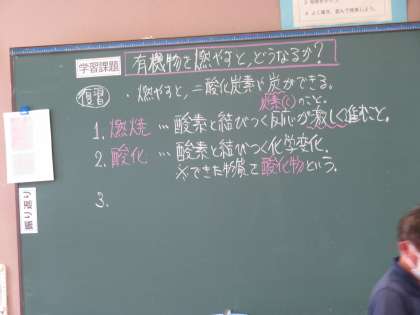 4 よく確認、進んで発表しよう。
学習課題 有機物を燃やすと、どうなるか？
復習 ・燃やすと、二酸化炭素や炭ができる。
炭素(C)のこと。
1. 燃焼 … 酸素と結びつく反応が激しく進むこと。
2. 酸化 … 酸素と結びつく化学変化。
※できた物質を酸化物という。
3.
振り返り